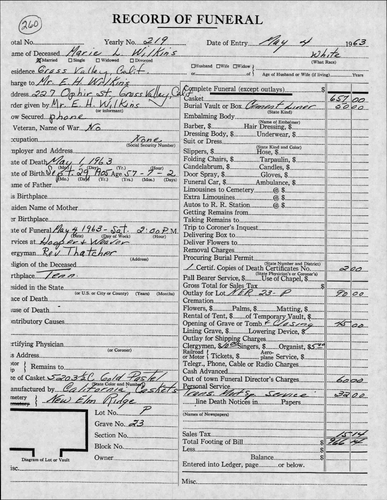 260
RECORD OF FUNERAL
otal No. Yearly No. 219 Date of Entry May 4 1963
ame of Deceased Marie L. Wilkins White
(What Race)
Married Single Widowed Divorced
Husband Wife Widow of
Age of Husband or Wife (if living) Years
esidence Grass Valley, Calif.
harge to Mr. E. H. Wilkins
Address 227 Ophir St. Grass Valley, Calif
rder given by Mr. E. H. Wilkins
(or informant)
ow Secured phone
Veteran, Name of War No
ccupation None
(Social Security Number)
mployer and Address
ate of Death May 1, 1963
(Mo.) (Day) (Year)
ate of Birth Sept. 29, 1905 Age 57-7-2
(Mo.) (Day) (Year) (Years) (Mos.) (Days)
ame of Father
is Birthplace
aiden Name of Mother
er Birthplace
ate of Funeral May 4, 1963 - Sat. 2:00 P.M.
ervices at Hooper & Weaver
ergyman Rev Thatcher
(Address)
eligion of the Deceased
rthplace Tenn
esided in the State
(or U.S. or City or County) (Years) (Months)
ace of Death
ause of Death
ontributory Causes
rtifying Physician
(or Coroner)
is Address
Remains to
e of Casket 5203 SC Gold Pastel
(State Color and Number)
anufactured by California Caskets
metery New Elm Ridge
Lot No. P
Grave No. 23
Section No.
Block No.
Diagram of Lot or Vault
Owner
Complete Funeral (except outlays)
Casket 657.00
Burial Vault or Box Cement Liner 60.00
(State Kind)
Embalming Body
Barber, $ Hair Dressing, $
Dressing Body, $ Underwear, $
Suit or Dress
(State Kind and Color)
Slippers, $ Hose, $
Folding Chairs, $ Tarpaulin, $
Candelabrum, $ Candles, $
Door Spray, $ Gloves, $
Funeral Car, $ Ambulance, $
Limousines to Cemetery @ $
Extra Limousines @ $
Autos to R. R. Station @ $
Getting Remains from
Taking Remains to
Trip to Coroner's Inquest
Delivering Box to
Deliver Flowers to
Removal Charges
Procuring Burial Permit
(State Number and District)
1 Certif. Copies of Death Certificates No. 2.00
(State Physician's or Coroner's)
Pall Bearer Service, $ Use of Chapel, $
Gross Total for Sales Tax
Outlay for Lot NER 23-P 90.00
Cremation
Flowers, $ Palms, $ Matting, $
Rental of Tent, $ of Temporary Vault, $
Opening of Grave or Tomb & Closing 45.00
Outlay for Shipping Charges
Clergymen, $10.00 Singers, $ Organist, $5.00
Railroad or Motor Tickets, $ Aeroplane Service, $
Telep., Phone, Cable or Radio Charges
Cash Advanced
Out of town Funeral Director's Charges 60.00
Personal Service
line Death Notices in Papers 32.00
(Names of Newspapers)
Sales Tax 15.14
Total Footing of Bill $
Less
Balance
Entered into Ledger, page or below.
Misc.